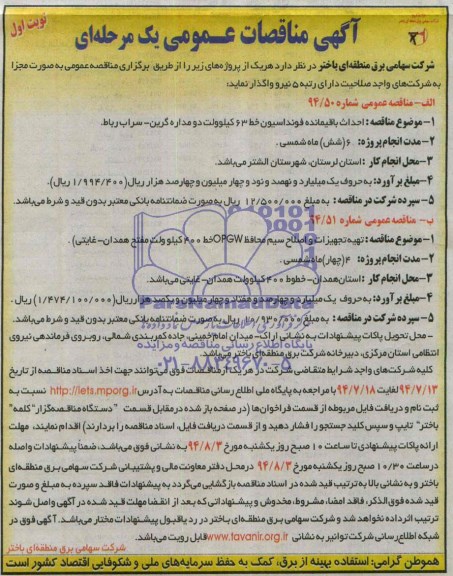 نوبت اول
آگهی مناقصات عمومی یک مرحله‌ای
شرکت سهامی برق منطقه‌ای باختر در نظر دارد هریک از پروژه‌های زیر را از طریق برگزاری مناقصه عمومی به صورت مجزا
به شرکت‌های واجد صلاحیت دارای رتبه ۵ نیرو واگذار نماید:
الف- مناقصه عمومی شماره ۹۴/۵۰
۱- موضوع مناقصه: احداث باقیمانده فونداسیون خط ۶۳ کیلوولت دو مداره گرین- سراب ریاط.
۲- مدت انجام پروژه: ۶ (شش) ماه شمسی.
۳- محل انجام کار: استان لرستان، شهرستان الشتر می‌باشد.
۴- مبلغ برآورد: به حروف یک میلیارد و نهصد و نود و چهار میلیون و چهارصد هزار ریال (۱/۹۹۴/۴۰۰ ریال).
۵- سپرده شرکت در مناقصه: به مبلغ ۱۲/۵۰۰/۰۰۰ ریال به صورت ضمانتنامه بانکی معتبر بدون قید و شرط می‌باشد.
ب- مناقصه عمومی شماره ۹۴/۵۱
۱- موضوع مناقصه: تهیه تجهیزات و اصلاح سیم محافظ OPGW خط ۴۰۰ کیلوولت مفتح همدان- غایتی).
۲- مدت انجام پروژه: ۴ (چهار) ماه شمسی.
۳- محل انجام کار: استان همدان- خطوط ۴۰۰ کیلوولت همدان- غایتی می‌باشد.
۴- مبلغ برآورد: به حروف یک میلیارد و چهارصد و هفتاد و چهار میلیون و یکصد هزار ریال (۱/۴۷۴/۱۰۰/۰۰۰ ریال).
۵- سپرده شرکت در مناقصه: به مبلغ ۱۰/۹۳۰/۰۰۰ ریال به صورت ضمانتنامه بانکی معتبر بدون قید و شرط می‌باشد.
- محل تحویل پاکات پیشنهادات به نشانی اراک- میدان امام خمینی، جاده کمربندی شمالی، روبروی فرماندهی نیروی
انتظامی استان مرکزی، دبیرخانه شرکت برق منطقه‌ای باختر می‌باشد.
کلیه شرکت‌های واجد شرایط متقاضی شرکت در هر یک از مناقصات فوق می‌توانند جهت اخذ اسناد مناقصه از تاریخ
۹۴/۷/۱۳ لغایت ۹۴/۷/۱۸ با مراجعه به پایگاه ملی اطلاع رسانی مناقصات به آدرس http://iets.mporg.ir نسبت به
ثبت نام و دریافت فایل مربوطه از قسمت فراخوان‌ها (در صفحه باز شده در مقابل قسمت "دستگاه مناقصه‌گزار" کلمه
"باختر" تایپ و سپس کلید جستجو را فشار دهید و از قسمت دریافت فایل، اسناد مناقصه را بردارند) اقدام نمایند، مهلت
ارائه پاکات پیشنهادی تا ساعت ۱۰ صبح روز یکشنبه مورخ ۹۴/۸/۳ به نشانی فوق می‌باشد، ضمناً پیشنهادات واصله
در ساعت ۱۰/۳۰ صبح روز یکشنبه مورخ ۹۴/۸/۳ در محل دفتر معاونت مالی و پشتیبانی شرکت سهامی برق منطقه‌ای
باختر و به نشانی بالا به ترتیب قید شده در اسناد مناقصه بازگشایی می‌گردد به پیشنهادات فاقد سپرده به مبلغ و صورت
قید شده فوق‌الذکر، فاقد امضا، مشروط، مخدوش و پیشنهاداتی که بعد از انقضا مهلت قید شده در آگهی واصل شوند
ترتیب اثر داده نخواهد شد و شرکت سهامی برق منطقه‌ای باختر در رد یا قبول پیشنهادات مختار می‌باشد. آگهی فوق در
شبکه اطلاع رسانی شرکت توانیر به نشانی www.tavanir.org.ir قابل رویت می‌باشد.
شرکت سهامی برق منطقه‌ای باختر
هموطن گرامی: استفاده بهینه از برق، کمک به حفظ سرمایه‌های ملی و شکوفایی اقتصاد کشور است
ParsNamadData
پایگاه اطلاع رسانی مناقصه و مزایده
۰۲۱-۸۸۳۴۹۶۷۰-۵